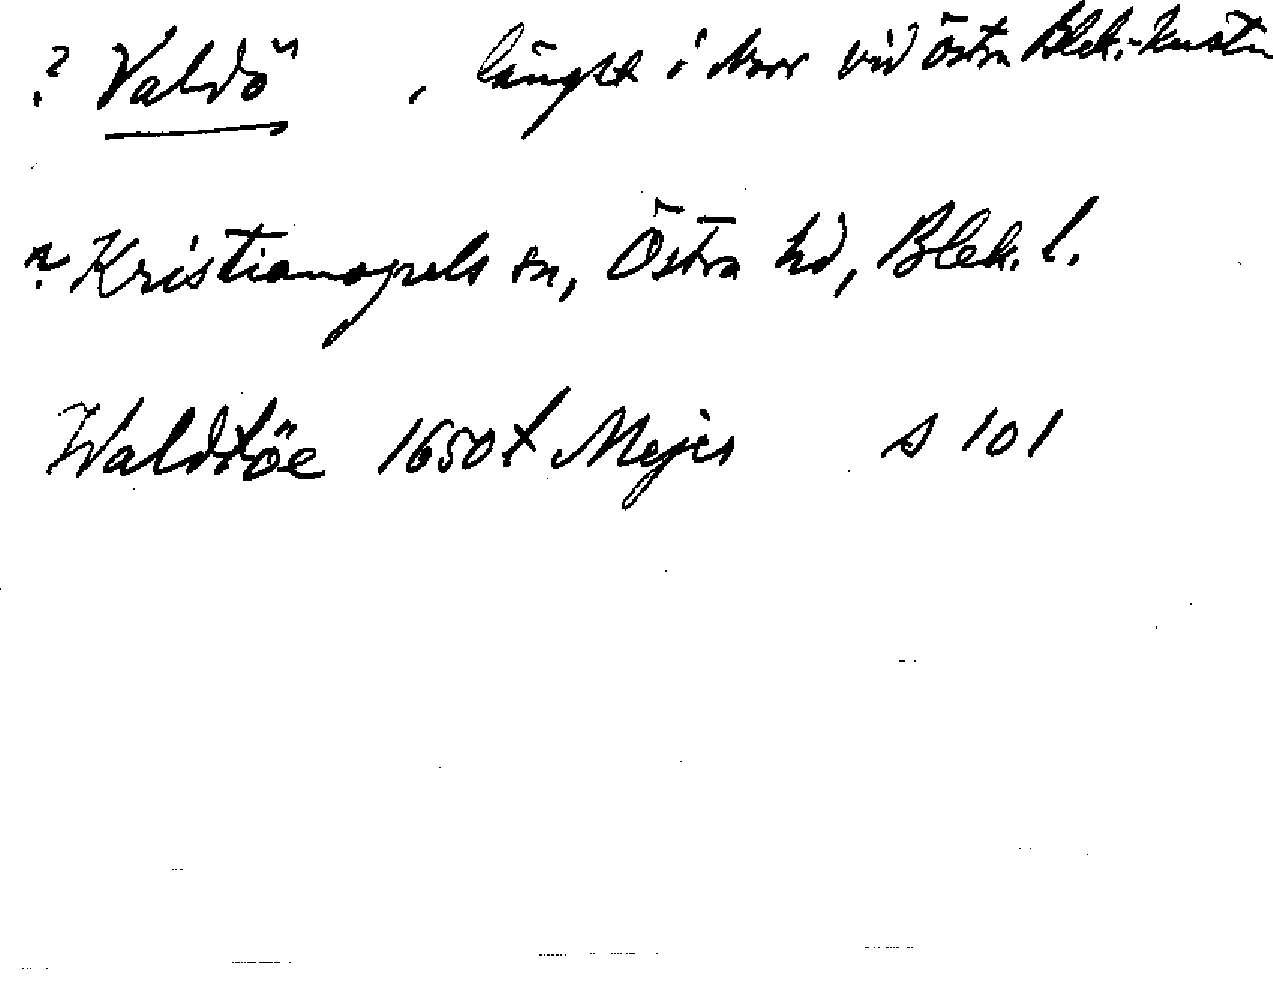 ? Valdö , längst i Norr vid Östra Blek.-kusten
? Kristianopels sn, Östra hd, Blek. l.
Waldtöe 1650t Mejer s 101